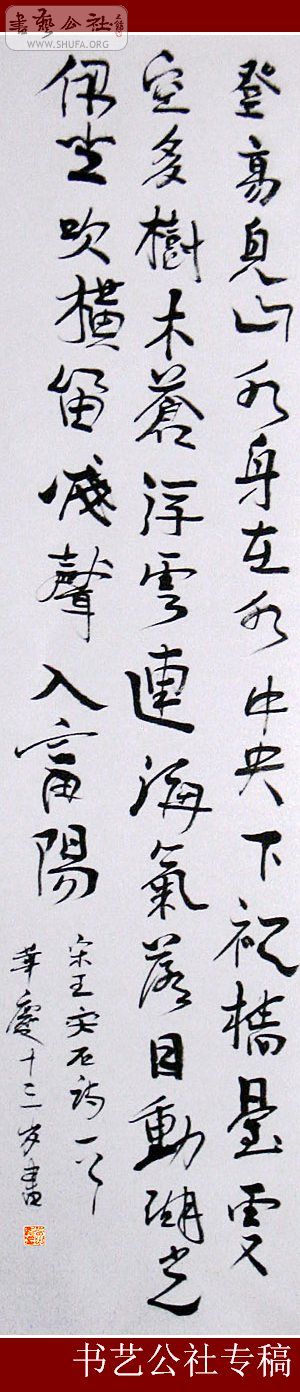 書藝公社
WWW.SHUFA.ORG
登高見山水身在水中央下視樓臺處
空多樹木蒼浮雲連海氣落日動湖光
偶坐吹橫笛殘聲入富陽
宋王安石詩一首
華慶十三岁書
书艺公社专稿